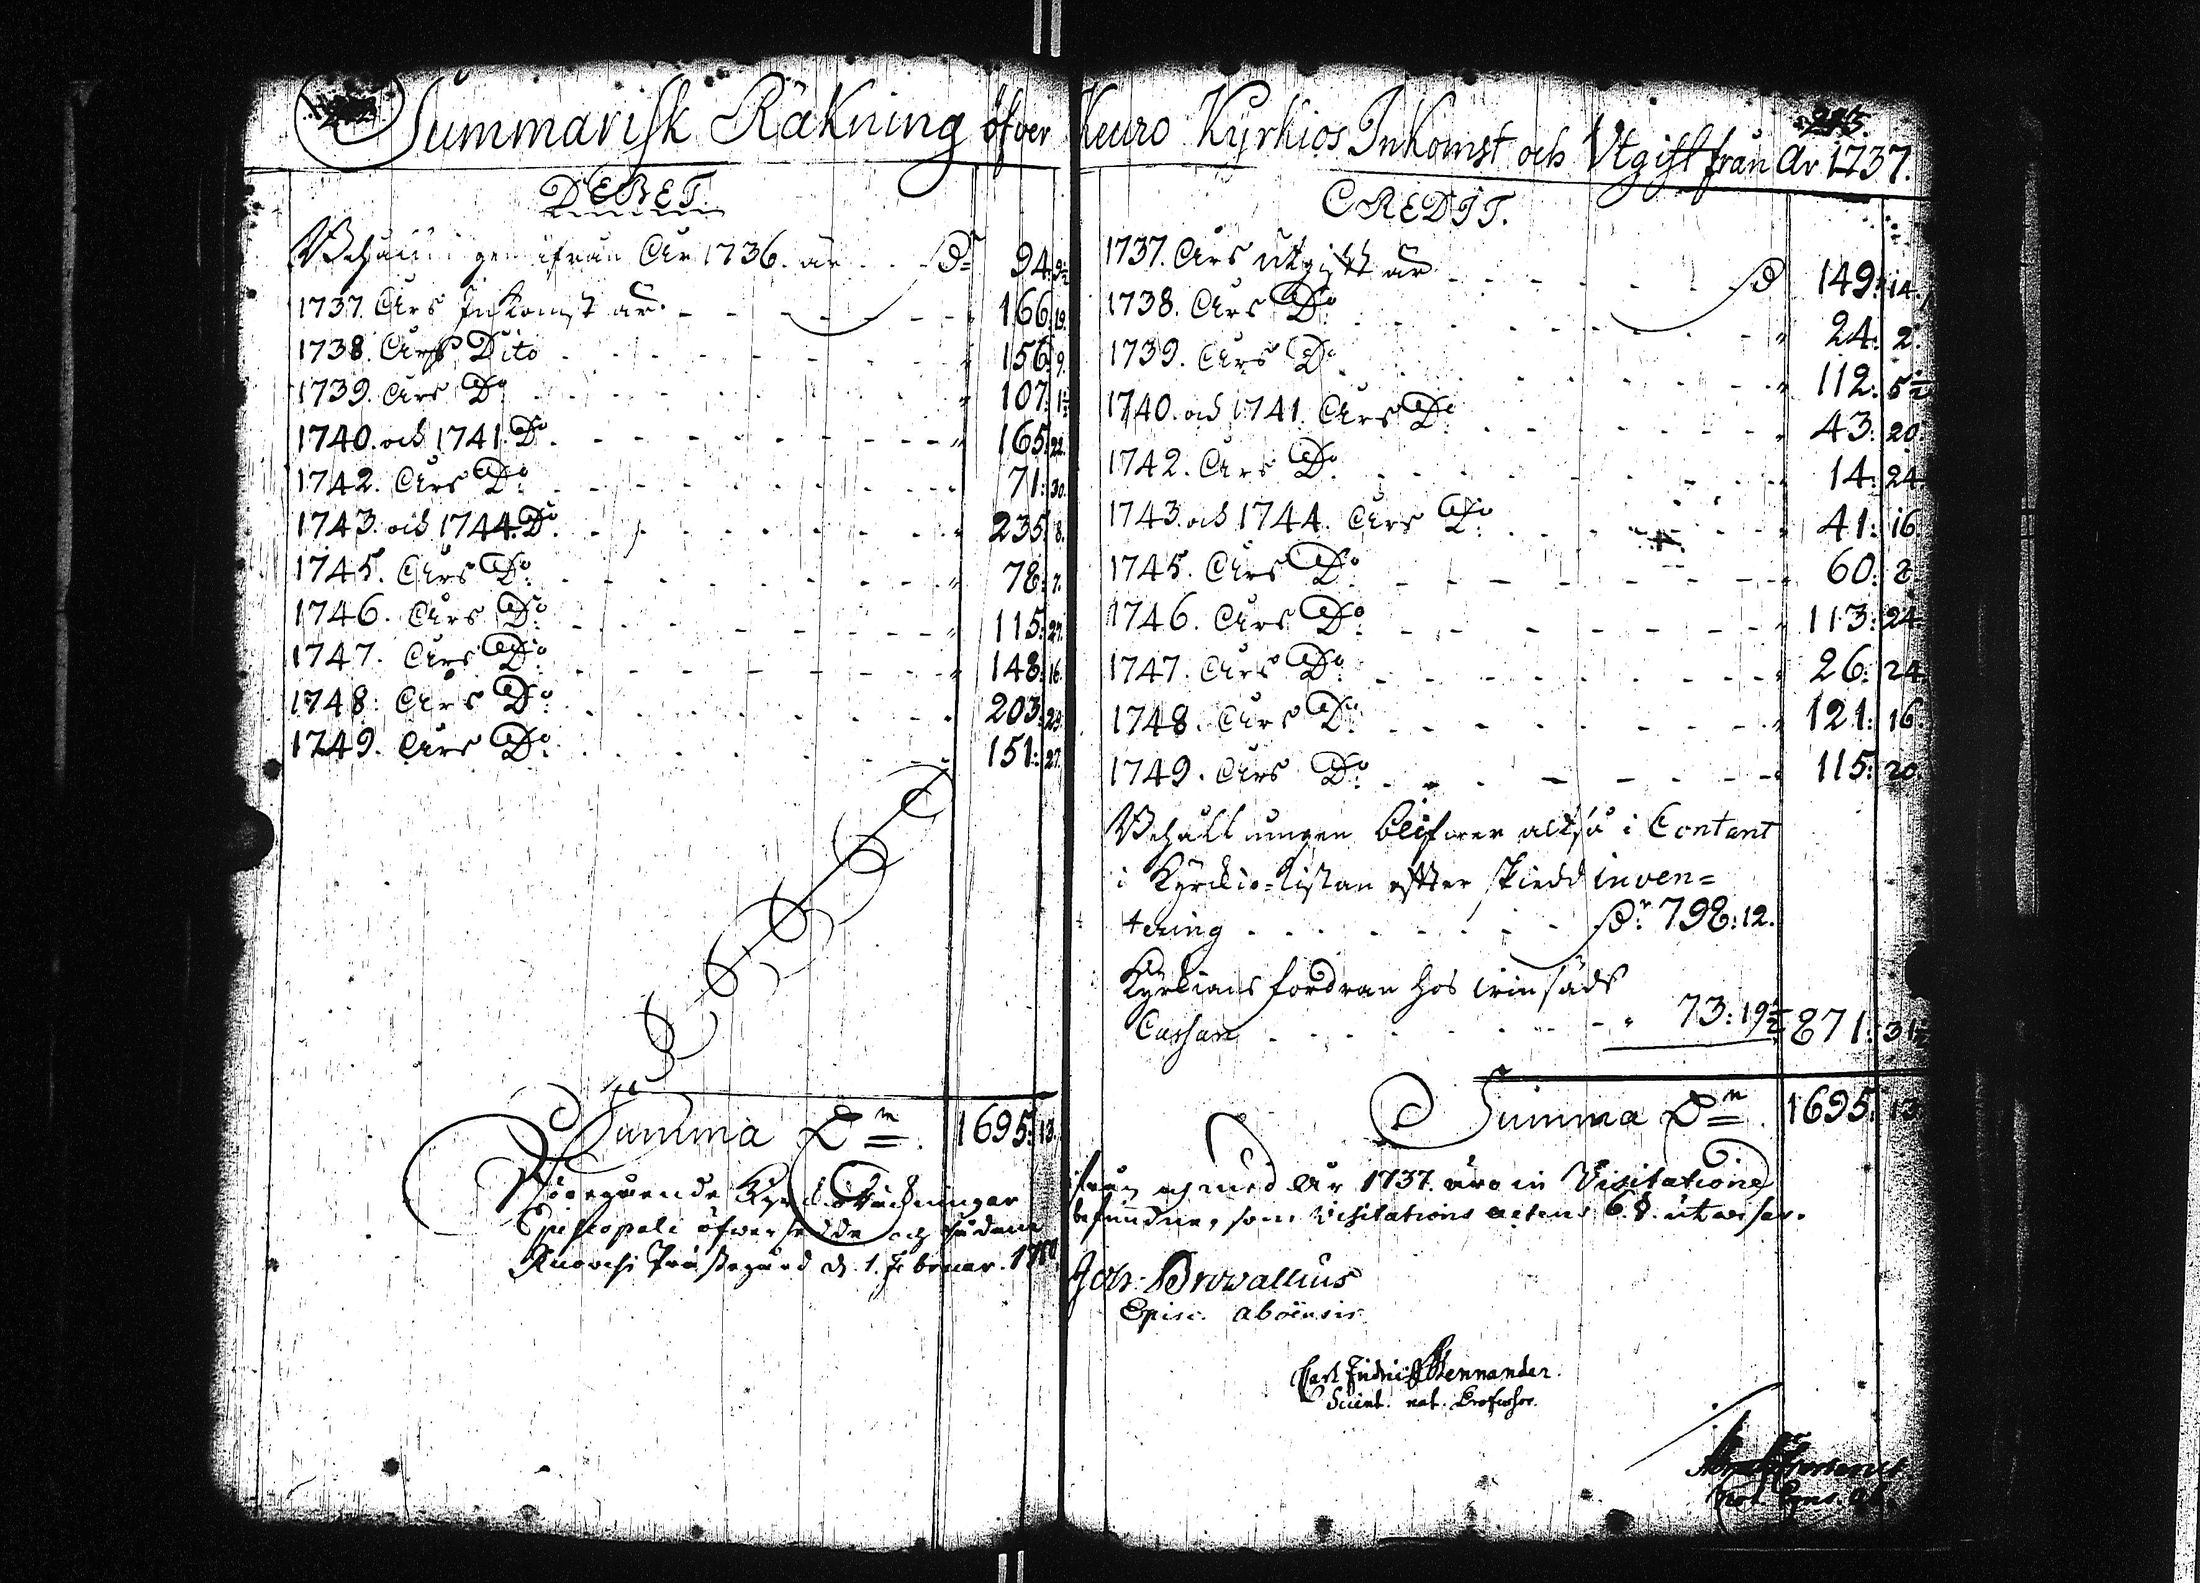 Summarisk Räkning öfver Keuro Kÿrkios Inkomst och Utgift från År 1737.
DEBET.
Behållningen ifrån År 1736. är . . Dr 94: 9½
1737. Års Inkomst är. 166: 19.
1738. Års Dito 156: 9.
1739. Års Do 107: 1½
1740. och 1741. Do. 165: 22.
1742. Års Do. 71: 30.
1743. och 1744. Do. 235: 8.
1745. Års Do. 78: 7.
1746. Års Do. 115: 27.
1747. Års Do. 148: 16.
1748. Års Do. 203: 29.
1749. Års Do. 151: 27.
Summa Dr 1695: 13.
CREDIT.
1737. Års utgift är D 149: 14.
1738. Års Do. 24: 2.
1739. Års Do 112: 5½
1740. och 1741. Års Do 43: 20.
1742. Års Do. 14: 24.
1743. och 1744. Års Do. 41: 16.
1745. Års Do. 60: 2
1746. Års Do. 113: 24.
1747. Års Do. 26: 24
1748. Års Do. 121: 16.
1749. Års Do. 115: 20.
Behållningen blifwer altså i Contant
i Kÿrckio-kistan effter skiedd inven=
tering Dr 798: 12.
Kÿrkians fordran hos
Cassan 73: 19½ 871: 31½
Summa Dr 1695: 13
Föregående Kyrckioräckningar ifrån och med År 1737. äro in Visitatione
Episcopali öfwersedde och sådane befundne, som Visitations actens 6. §. utwisar.
Ruovesi Prästegård d. 1. Februar. 1750.
Joh: Browallius
Episc. aboënsis
Carl Fridric Mennander.
Scient. nat. Professor.